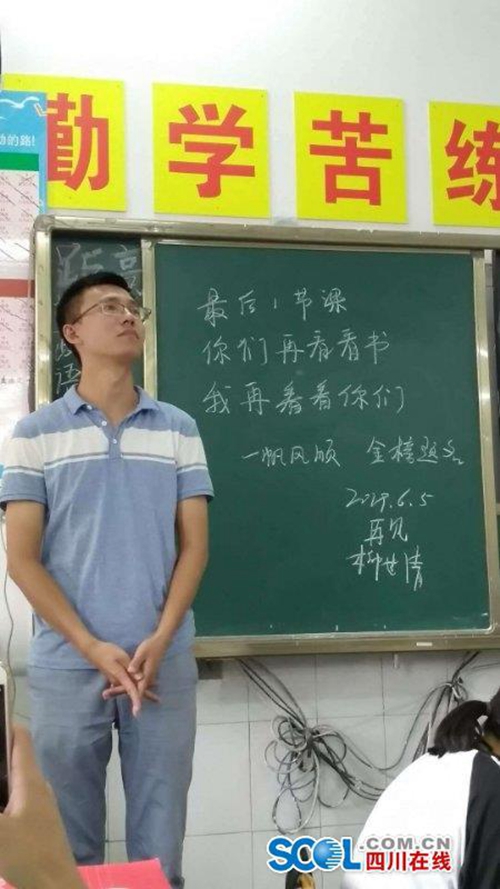 动的路!
勤学苦练
距高
语
最后1节课
你们再看看书
我再看看你们
一帆风顺 金榜题名
2019.6.5
再见
柳世清
SCOL.COM.CN
四川在线